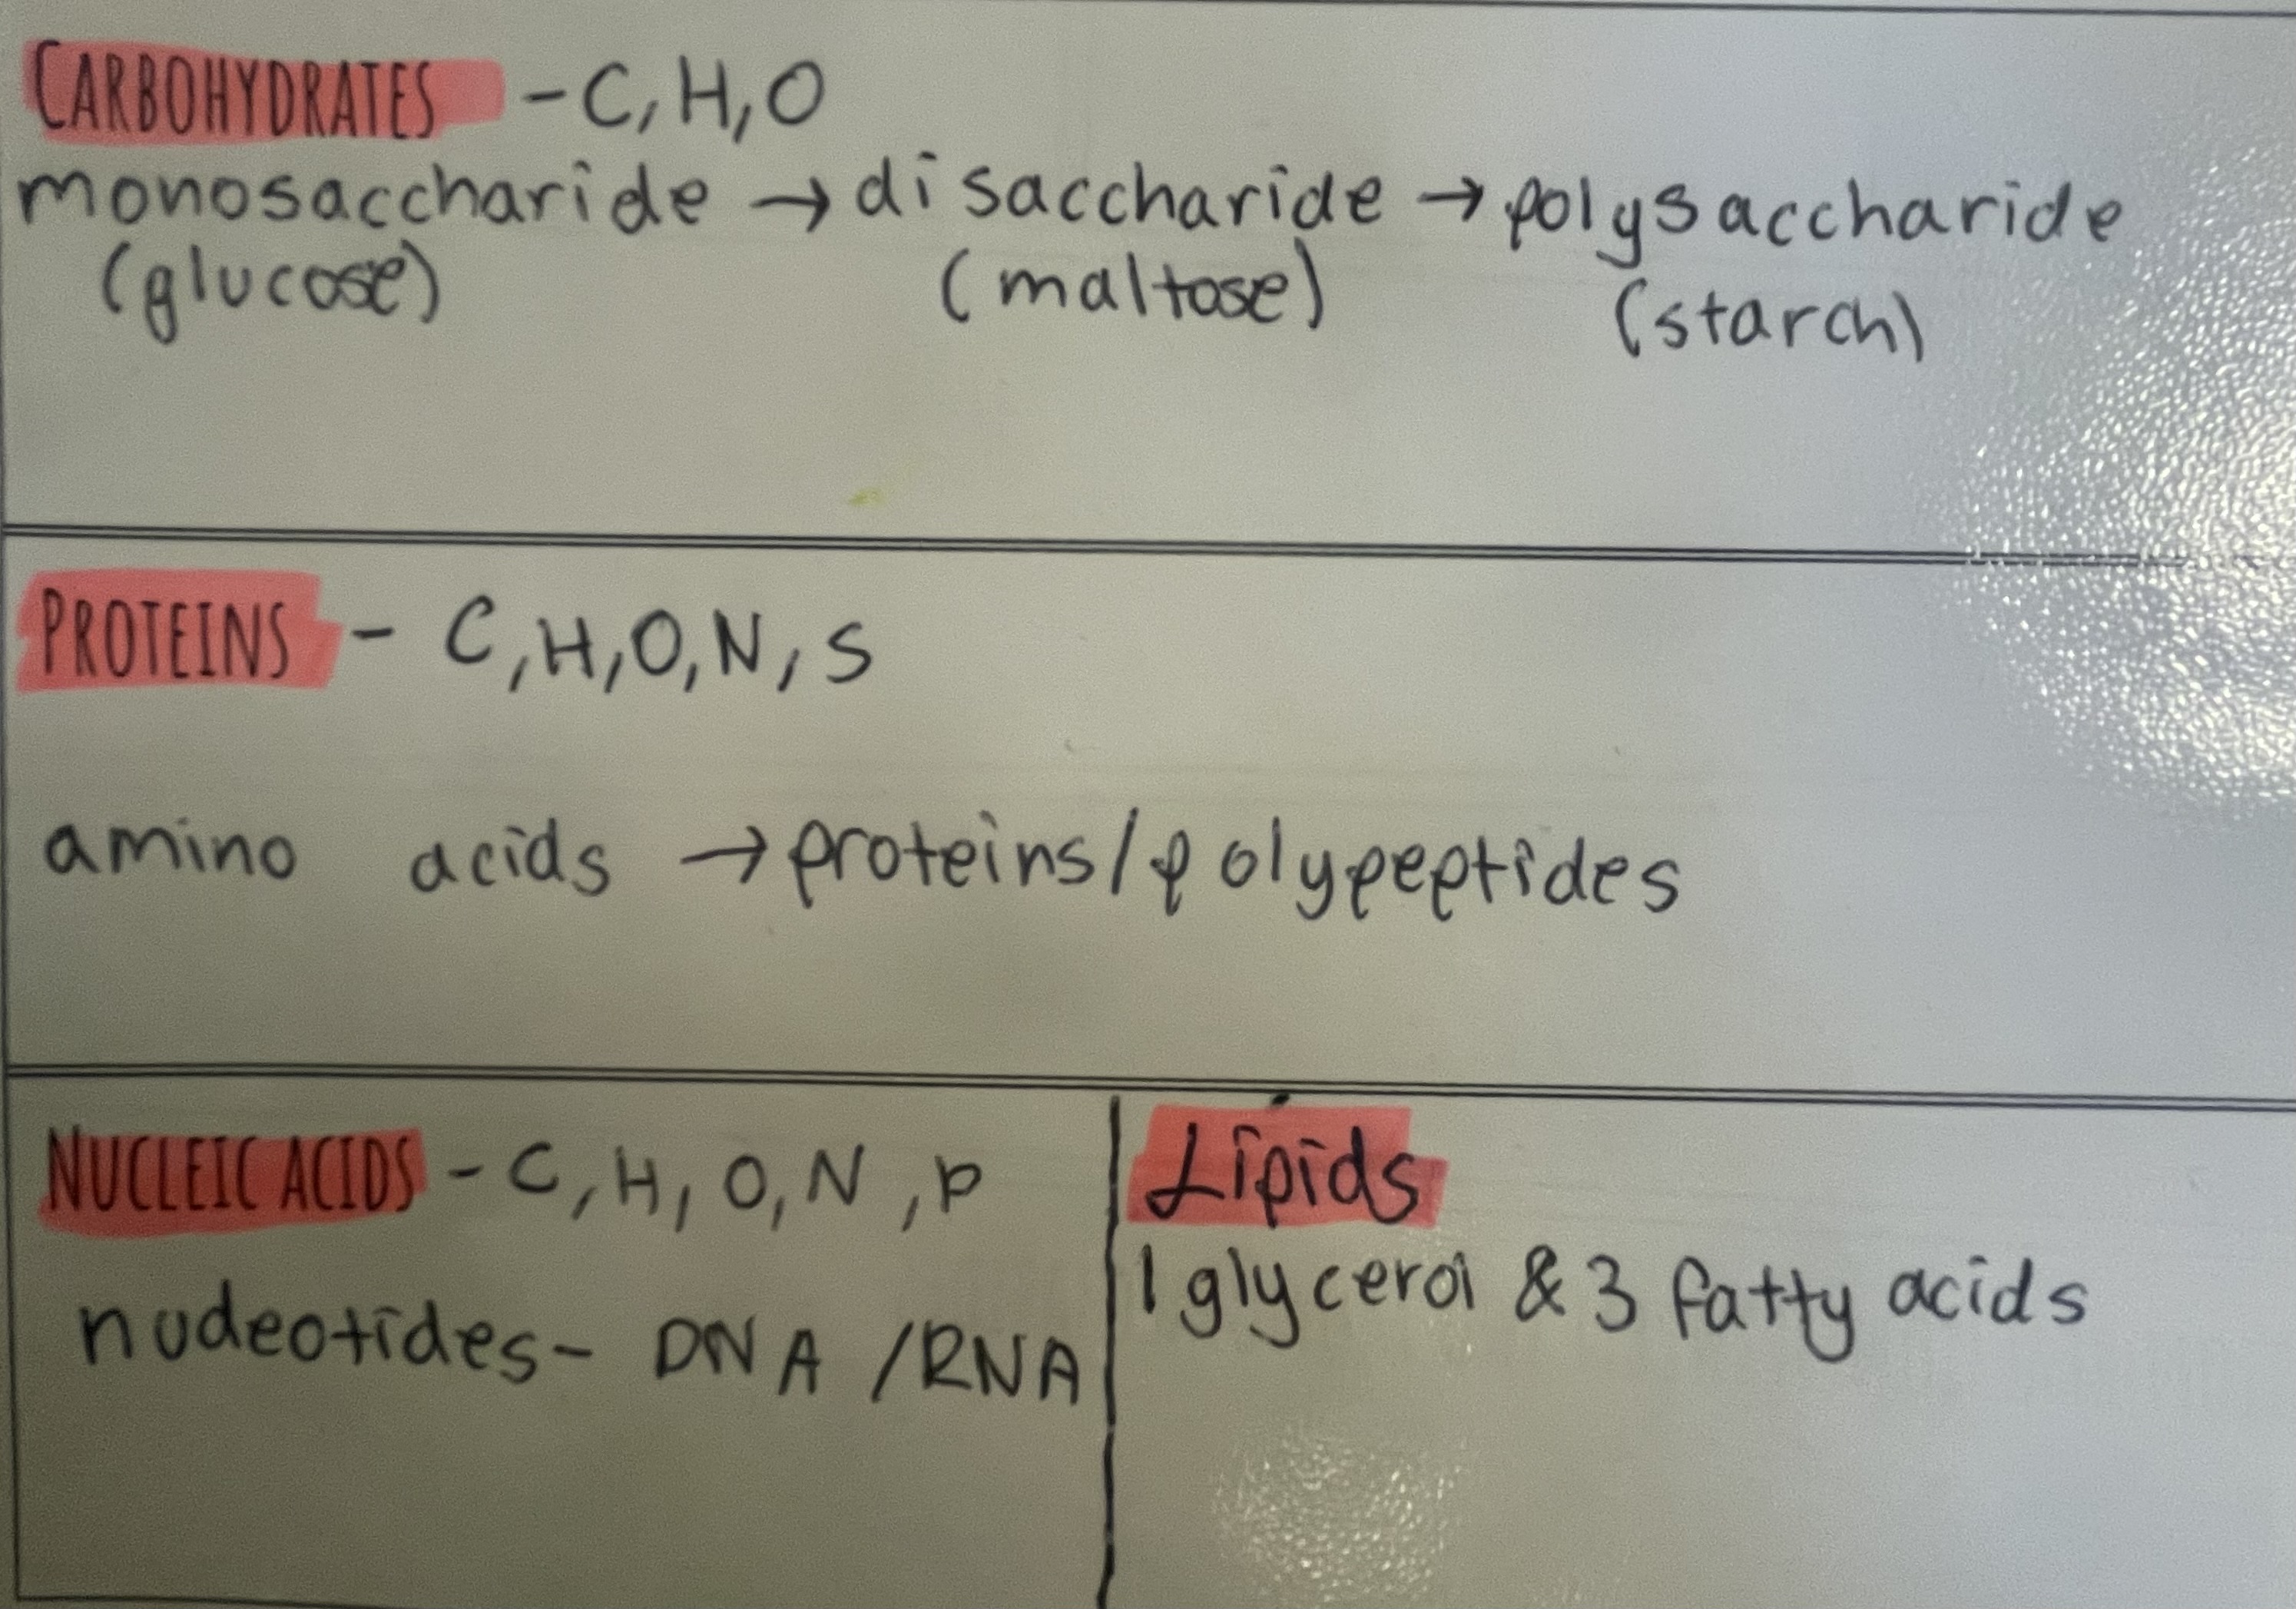 CARBOHYDRATES - C, H, O
monosaccharide → disaccharide → polysaccharide
(glucose) (maltose) (starch)
PROTEINS - C, H, O, N, S
amino acids → proteins/polypeptides
NUCLEIC ACIDS - C, H, O, N, P
nucleotides - DNA /RNA
Lipids
1 glycerol & 3 fatty acids